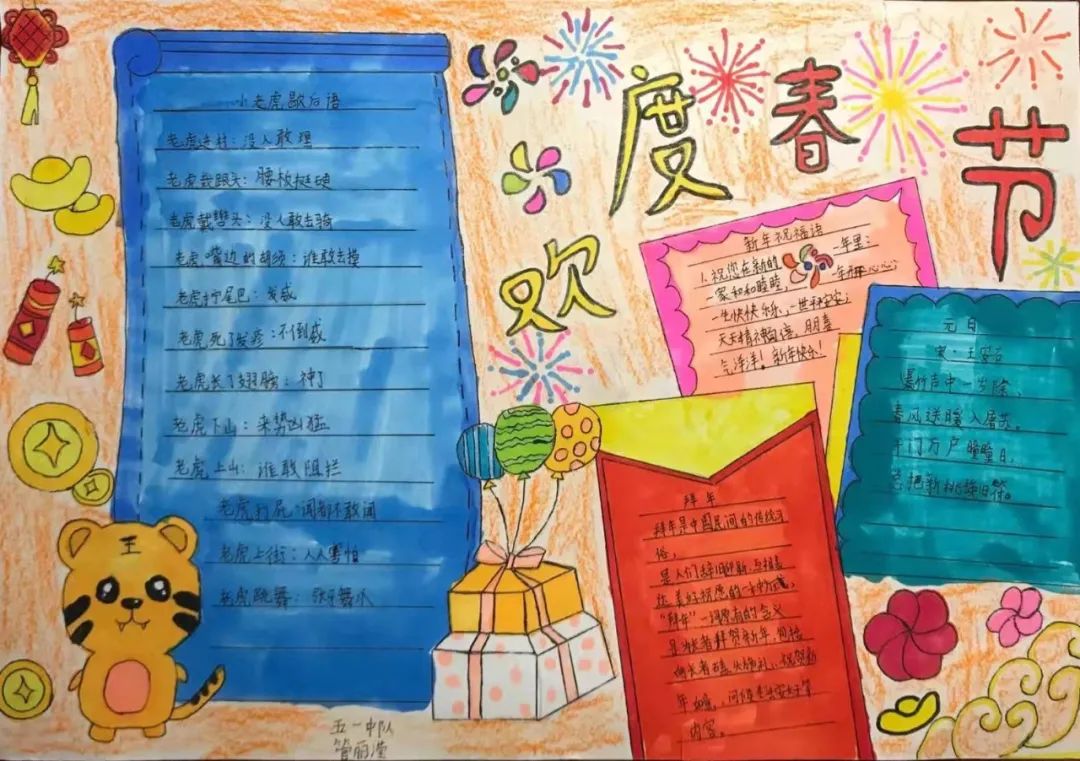 欢度春节
小老虎歇后语
老虎进村：没人敢理
老虎栽跟头：腰板挺硬
老虎戴辔头：没人敢去骑
老虎嘴边的胡须：谁敢去摸
老虎拧尾巴：发威
老虎死了发疹：不倒威
老虎长了翅膀：神了
老虎下山：来势凶猛
老虎上山：谁敢阻拦
老虎打屁：闻都不敢闻
老虎上街：人人害怕
老虎跳舞：张牙舞爪
王
五一中队
新年祝福语
1.祝您在新的一年里：
一家和和睦睦，一年开开心心；
一生快快乐乐，一世平平安安；
天天精神百倍，
气洋洋！新年快乐！
元日
宋·王安石
爆竹声中一岁除，
春风送暖入屠苏。
千门万户瞳瞳日，
总把新桃换旧符。
拜年
拜年是中国民间的传统习
俗，
是人们辞旧迎新、互相表
达美好祝愿的一种方式。
"拜年"一词原有的含义
是为长者拜贺新年，包括
向长者
内容。